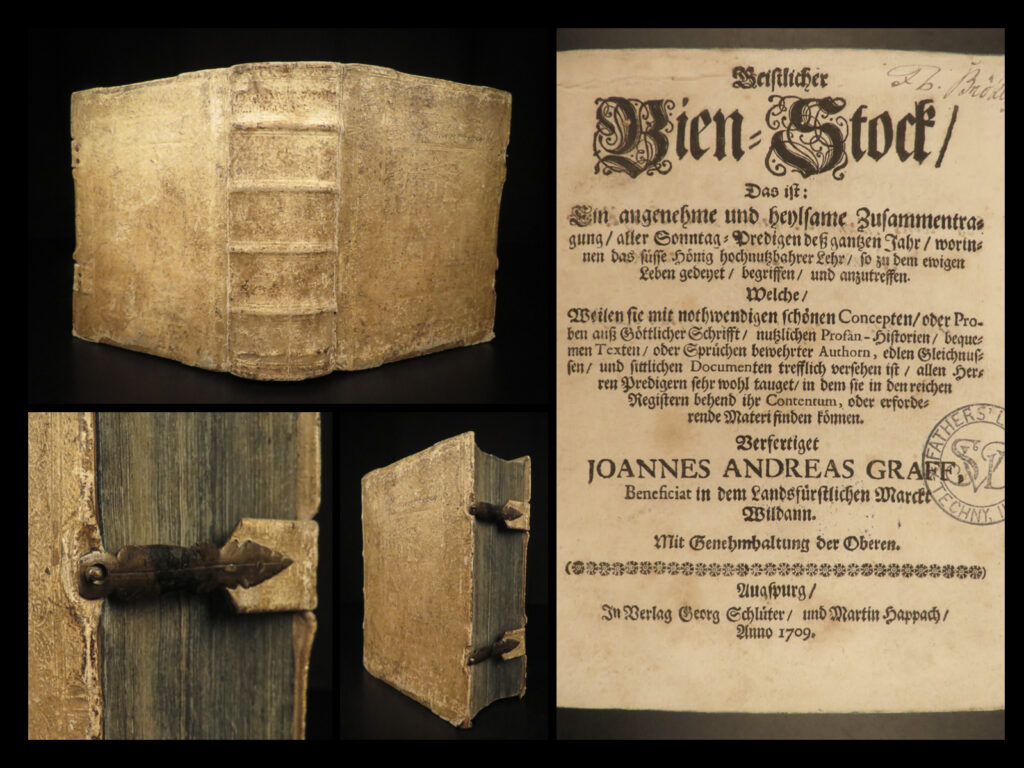 Geistlicher
Bien-Stock/
Das ist:
Ein angenehme und heylsame Zusammentra-
gung/ aller Sonntag-Predigen deß gantzen Jahr/ worin-
nen das süsse Hönig hochnutzbahrer Lehr/ so zu dem ewigen
Leben gedeyet/ begriffen/ und anzutreffen.
Welche/
Weilen sie mit nothwendigen schönen Concepten/ oder Pro-
ben auß Göttlicher Schrifft/ nutzlichen Profan-Historien/ beque-
men Texten/ oder Sprüchen bewehrter Authorn, edlen Gleichnus-
sen/ und sittlichen Documenten trefflich versehen ist/ allen Her-
ren Predigern sehr wohl tauget/ in dem sie in den reichen
Registern behend ihr Contentum, oder erforde-
rende Materi finden können.
Verfertiget
JOANNES ANDREAS GRAFF,
Beneficiat in dem Landsfürstlichen Marckt
Wildann.
Mit Genehmhaltung der Oberen.
Augspurg/
In Verlag Georg Schlüter/ und Martin Happach/
Anno 1709.
FATHERS'
SVD
TECHNY,